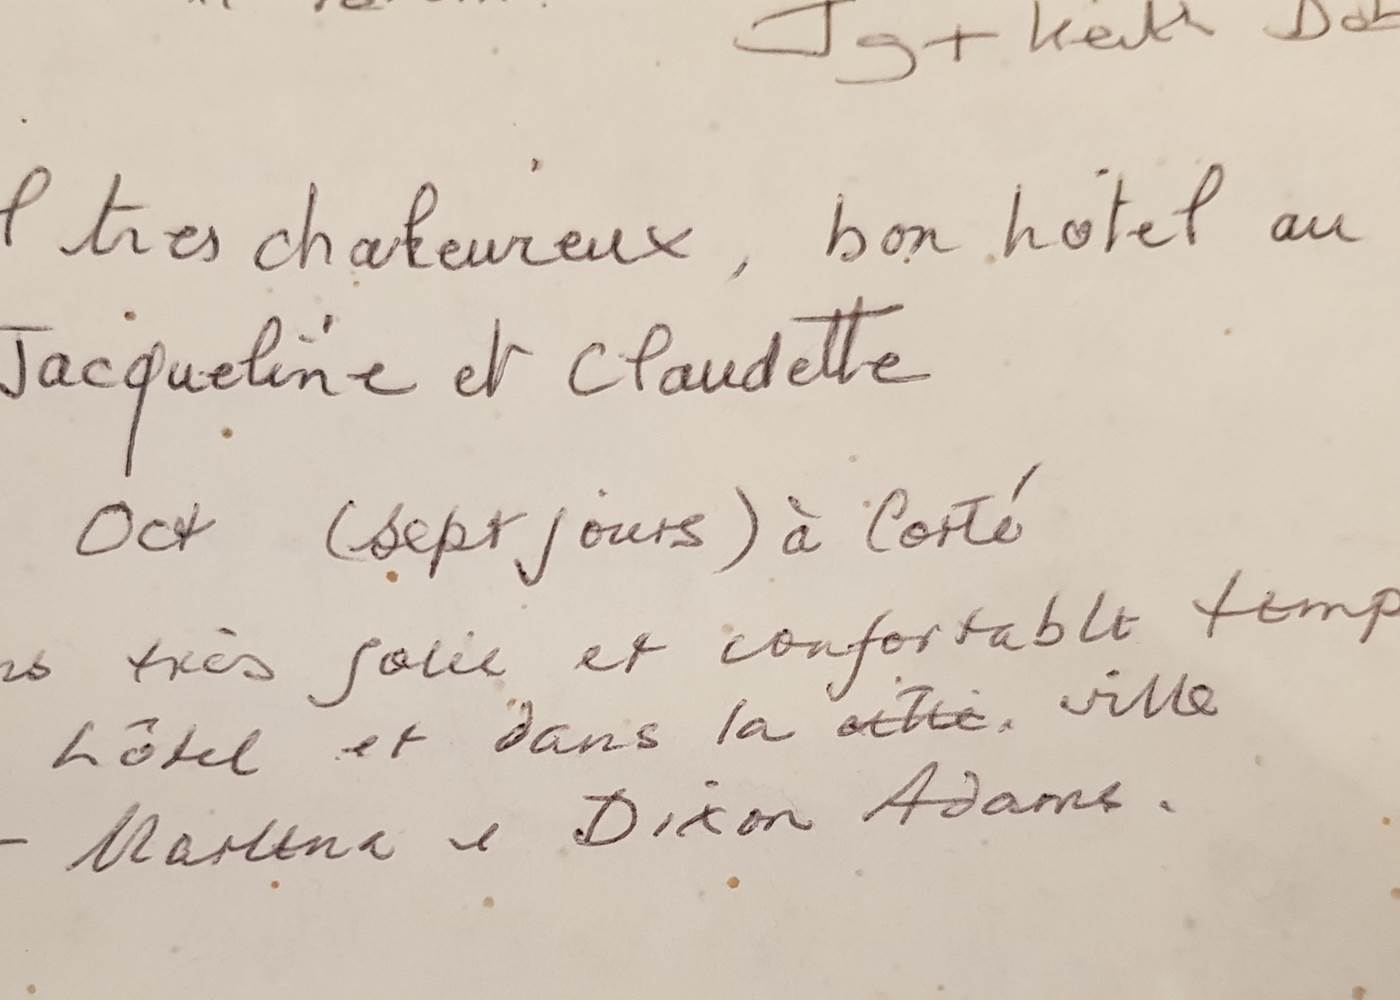 Jg + Keith
tres chaleureux, bon hôtel au
Jacqueline et Claudette
Oct (sept jours) à Corté
très jolie et confortable temp
hôtel et dans la ville
- Marlena e Dixon Adams.